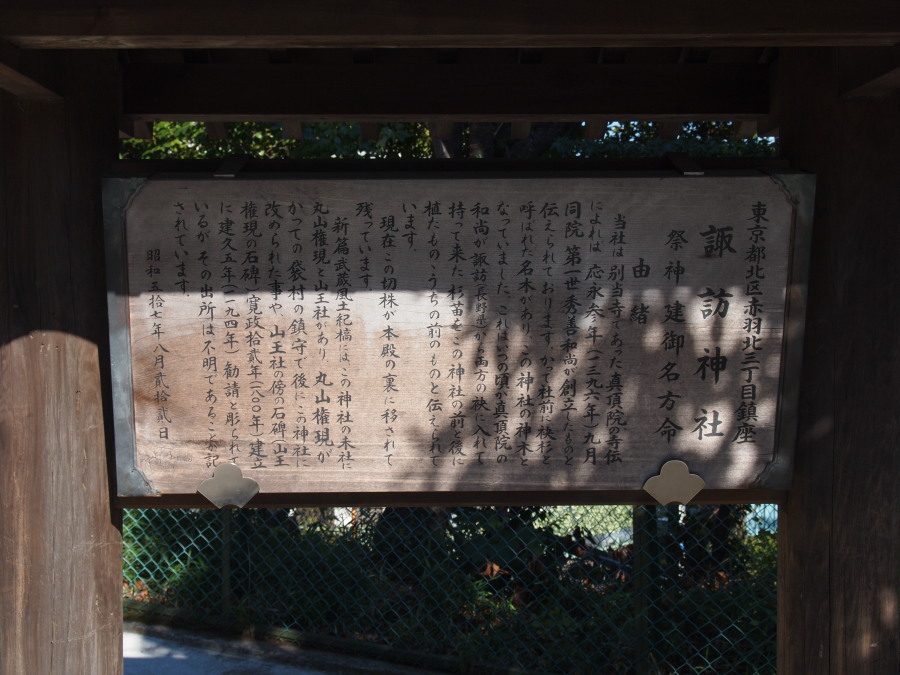 東京都北区赤羽北三丁目鎮座
諏訪神社
祭神 建御名方命
由緒
当社は 別当寺であった真頂院の寺伝
によれば 応永参年(一三九六年)九月
同院 第一世秀善和尚が創立したものと
伝えられております かって社前に袂杉と
呼ばれた名木があり この神社の神木と
なっていました、これはいつの頃か真頂院の
和尚が諏訪(長野道)から両方の袂に入れて
持って来た杉苗をこの神社の前と後に
植たもの、うちの前のものと伝えられて
います。
現在 この切株が本殿の裏に移されて
残っています。
新篇武蔵風土紀稿には この神社の末社に
丸山権現と山王社があり 丸山権現が
かっての袋村の鎮守で後にこの神社に
改められた事や 山王社の傍の石碑(山王
権現の石碑)寛政拾貳年(一八〇〇年)建立
に建久五年(一一九四年)勧請と彫られて
いるが その出所は不明であること記
されています。
昭和五拾七年八月貳拾貳日